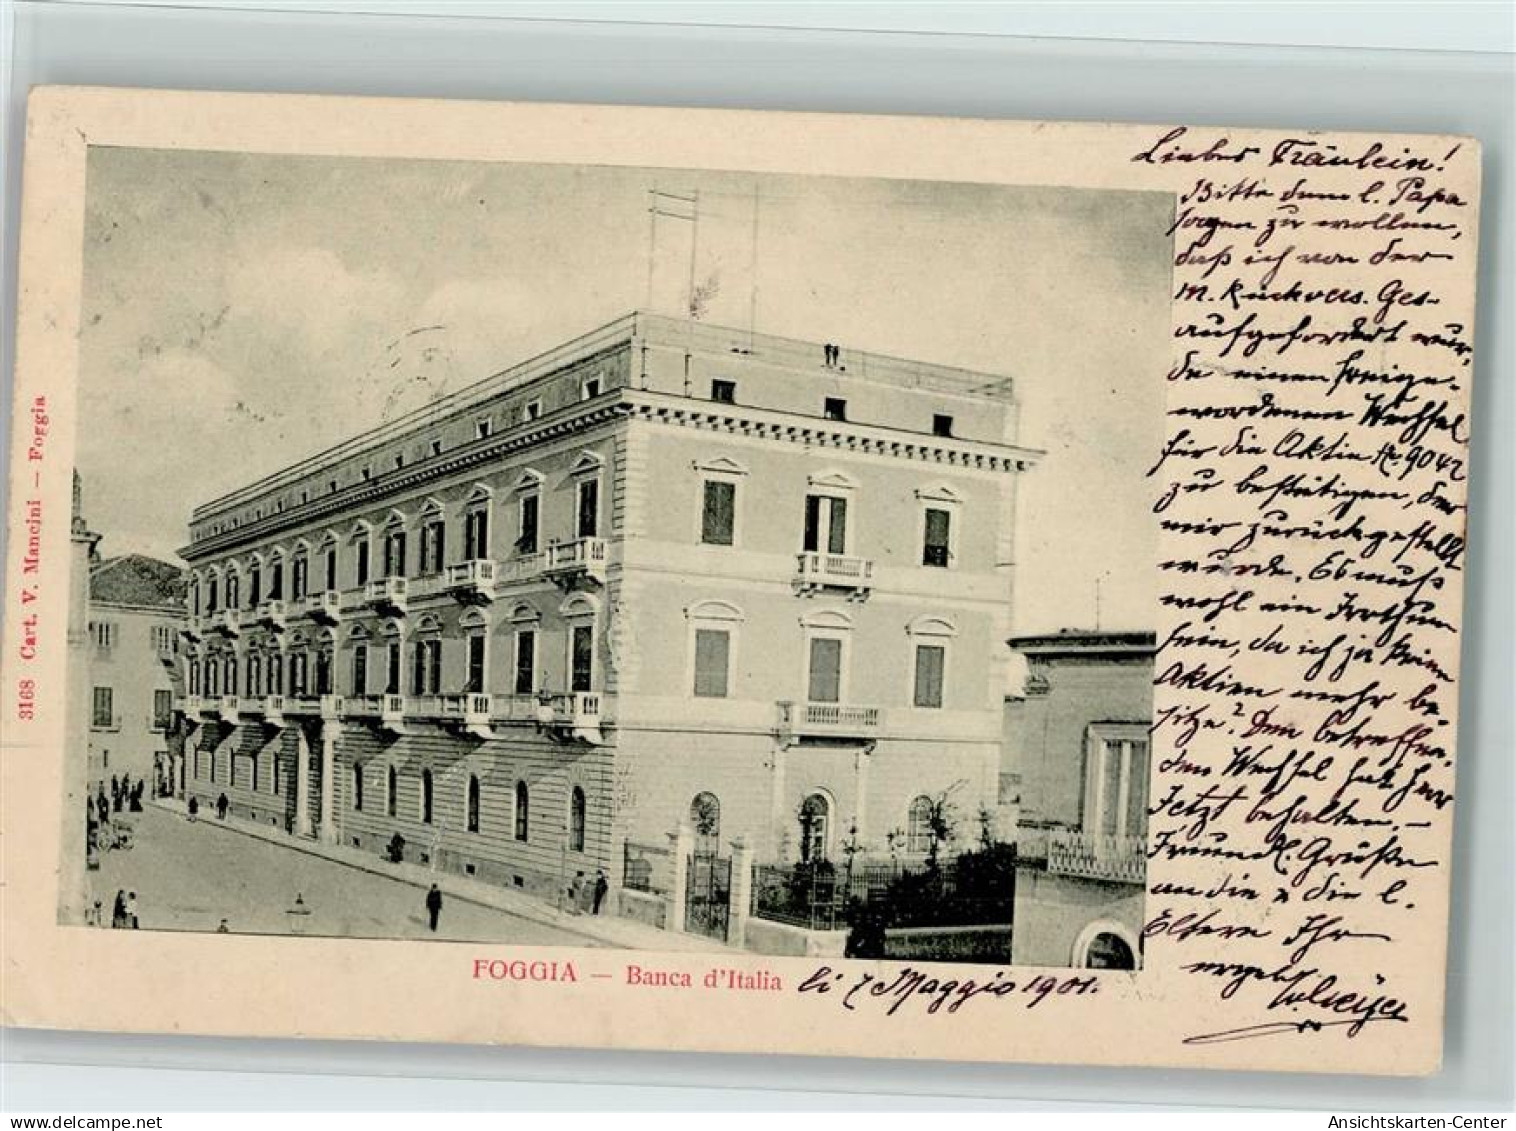 3168 Cart. V. Mancini — Foggia
FOGGIA — Banca d'Italia
li 7 Maggio 1901.
Liebes Fräulein!
Bitte dem l. Papa
sagen zu wollen,
daß ich von der
M. Rückvers. Ges.
aufgefordert wur-
de einen freige-
wordenen Wechsel
für die Aktie No. 9042
zu bestätigen, der
mir zurückgestellt
wurde. Es muß
wohl ein Irrthum
sein, da ich ja keine
Aktien mehr be-
sitze? Den betreffen-
den Wechsel hat Herr
Jetzt behalten. —
Freundl. Grüße
an die & die l.
Eltern Ihr
ergebl.
delcampe.net
Ansichtskarten-Center